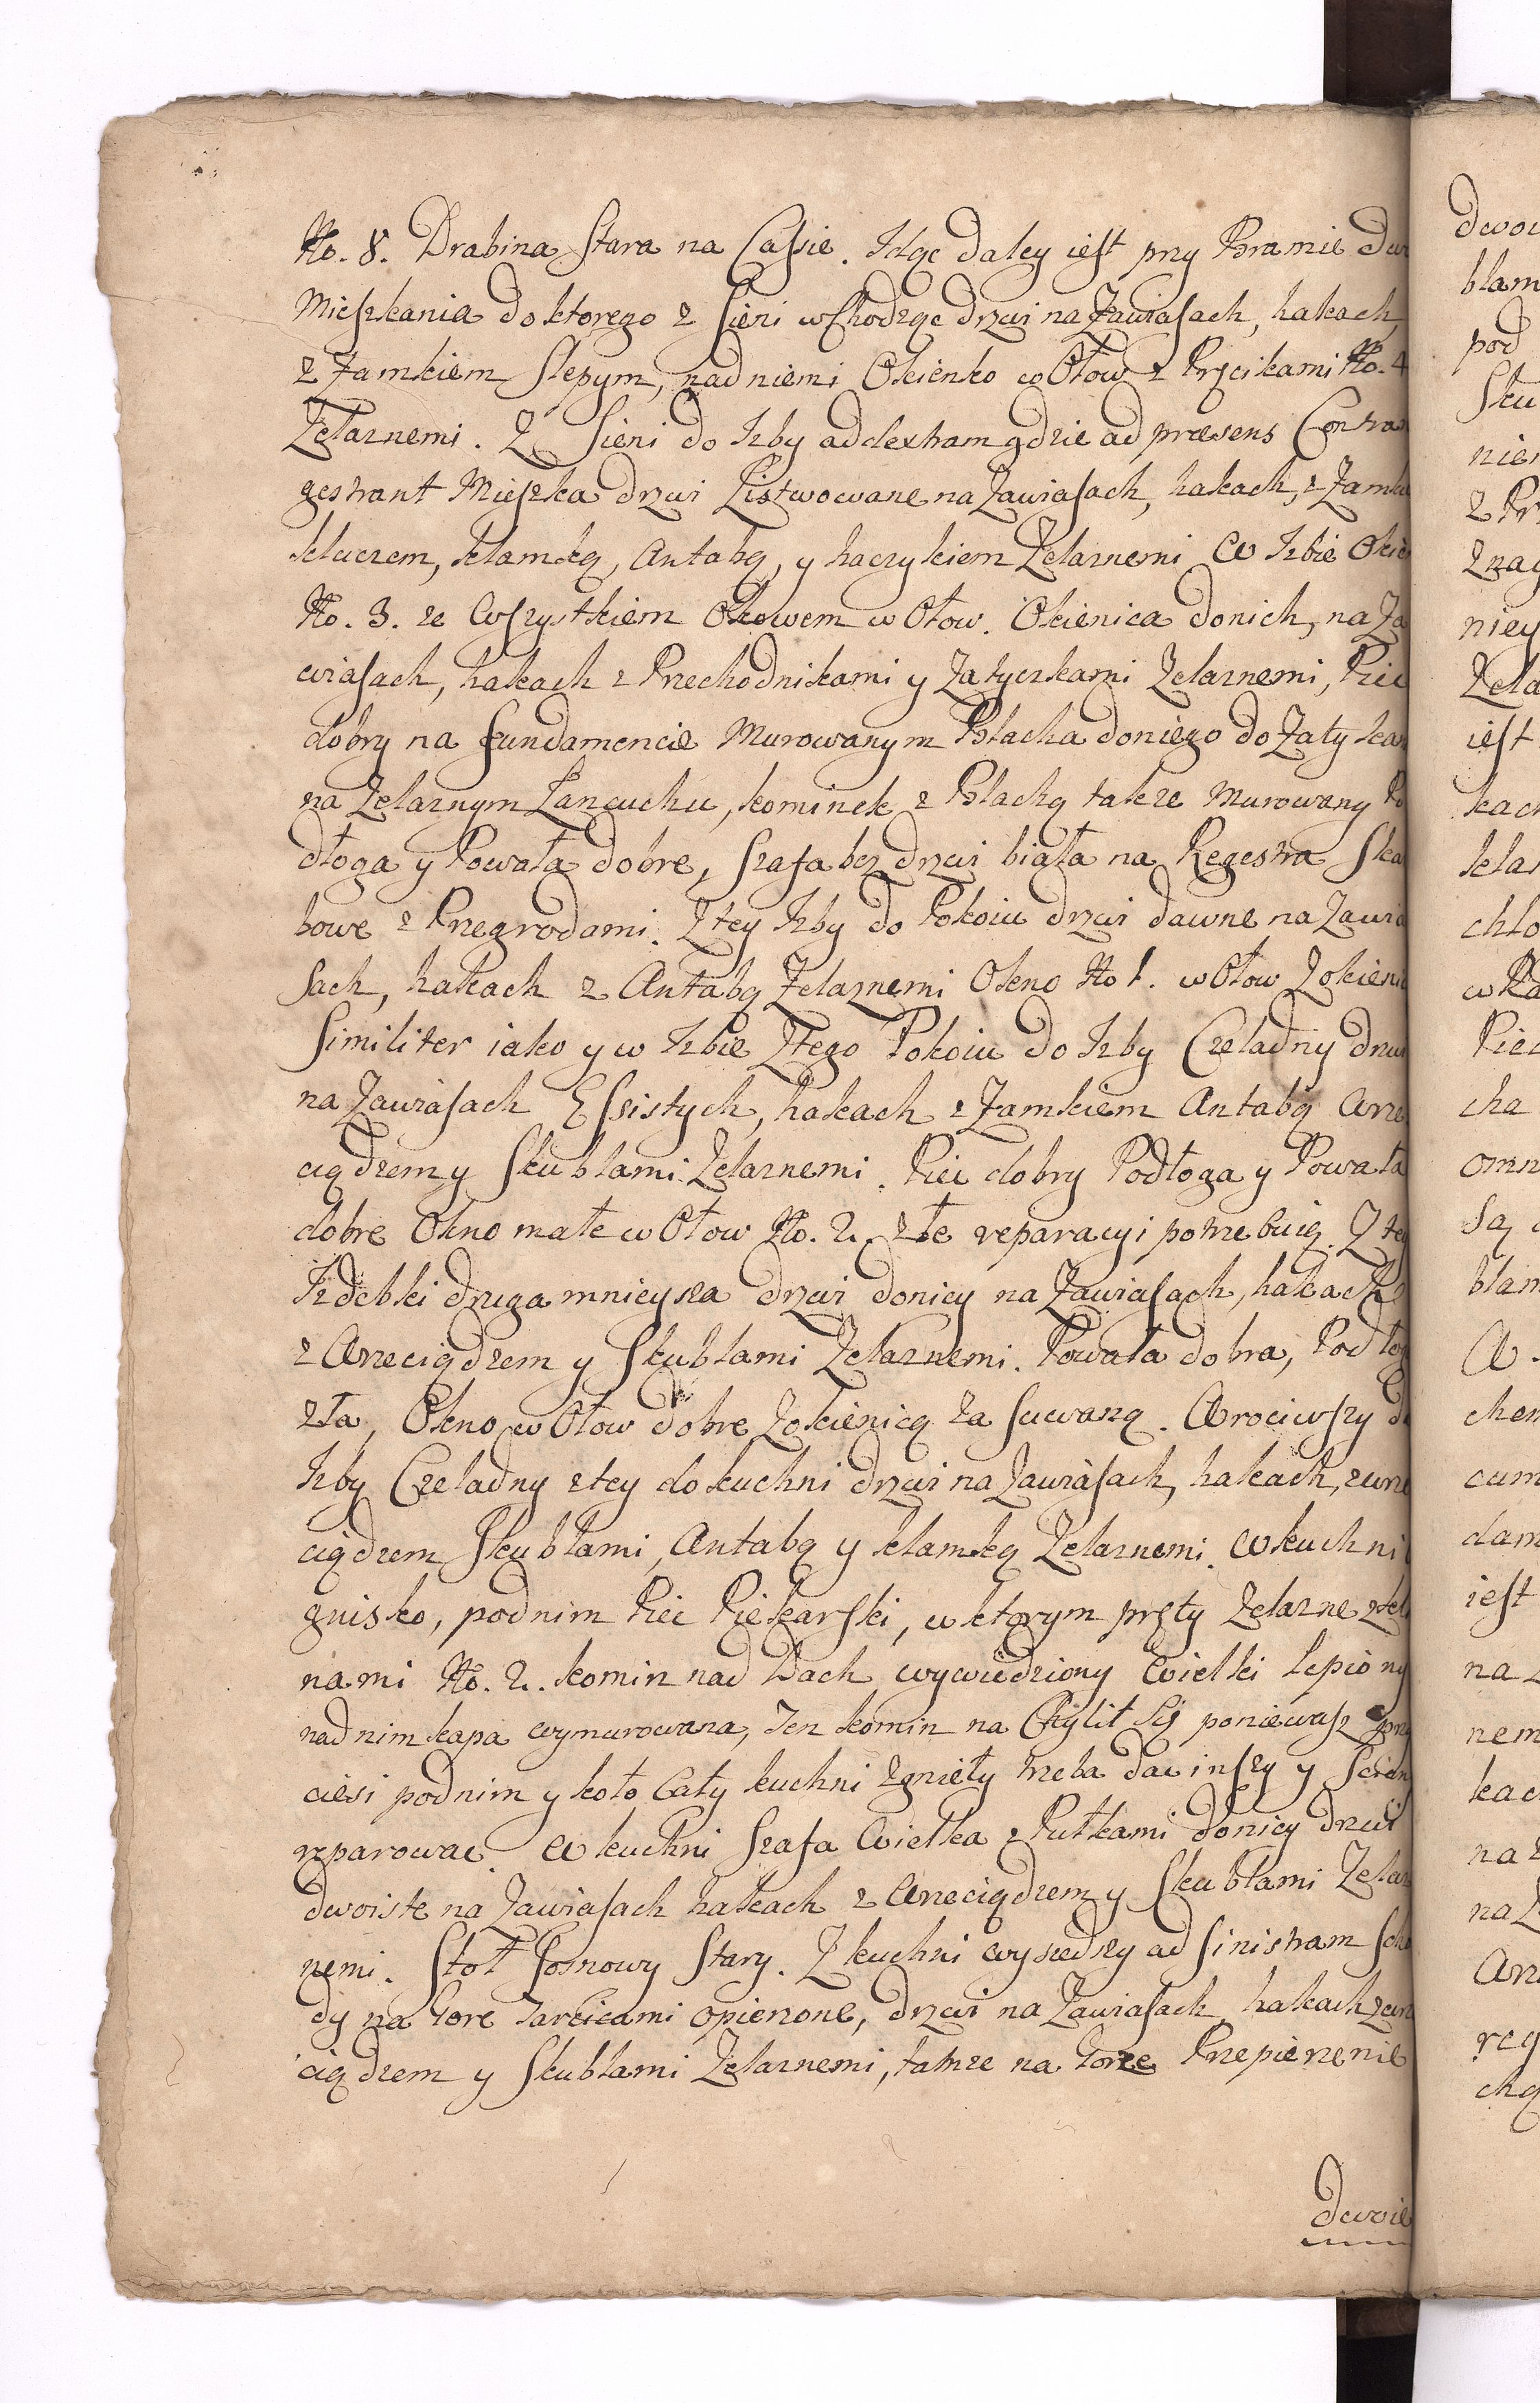 No. 8. Drabina Stara na Cassie. Idąc daley iest przy Bramie dw
Mieszkania do ktorego z Sieni wschodząc drzwi na Zawiasach, hakach,
z Zamkiem Slepym, nad niemi Okienko w Ołow z Pręcikami No. 4
Zelaznemi. Z Sieni do Izby ad dextram gdzie ad præsens Contra
gestrant Mieszka drzwi Listwowane na Zawiasach, hakach, z Zamk
kluczem, klamką, Antabą, y haczykiem Zelaznemi W Izbie Okie
No. 3. ze Wszystkiem Okowem w Ołow. Okienica do nich, na Za
wiasach, hakach z Przechodnikami y Zatyczkami Zelaznemi, Piec
dobry na fundamencie Murowanym Blacha do niego do Zatykan
na Zelaznym Łancuchu, kominek z Blachą takze Murowany Po
dłoga y Powała dobre, Szafa bez drzwi biała na Regestra Ska
bowe z Przegrodami. Z tey Izby do Pokoiu drzwi dawne na Zawia
sach, hakach z Antabą Zelaznemi Okno No 1. w Ołow Z okieni
Similiter iako y w Izbie Z tego Pokoiu do Izby Czeladny drzwi
na Zawiasach Essistych, hakach z Zamkiem Antabą Wrze
ciądzem y Skublami Zelaznemi. Piec dobry Podłoga y Powała
dobre Okno małe w Ołow No. 2. złe reparacyi potrzebuią. Z tey
Izdebki druga mnieysza drzwi do niey na Zawiasach, hakach
z Wrzeciądzem y Skublami Zelaznemi. Powała dobra, Podłog
zła, Okno w Ołow dobre Z okienicą Zasuwaną. Wrociwszy d
Izby Czeladny z tey do kuchni drzwi na Zawiasach, hakach, z wrze
ciądzem Skublami, Antabą y klamką Zelaznemi. W kuchni
gnisko, pod nim Piec Piekarski, w ktorym pręty Zelazne
nami No. 2. komin nad Dach wywiedziony Wielki Lepiony
nad nim kapa wymurowana, Ten komin na Chylił Się poniewasz
ciesi pod nim y koło Cały kuchni Zgnieły trzeba dac inszy y Scian
reparowac. W kuchni Szafa Wielka z Pułkami do niey drzwi
dwoiste na Zawiasach hakach z Wrzeciądzem y Skublami Zelaz
nemi. Stoł Sosnowy Stary. Z kuchni wyszedszy ad Sinistram Scho
dy na Gore Tarcicami opierzone, drzwi na Zawiasach hakach z wrz
ciądzem y Skublami Zelaznemi, tamze na Gorze Przepierzenie
dwoie
dwoi
blam
pod
Sku
niem
z Pr
Z nag
niey
Zela
iest
kach
klam
chło
w Ra
Piec
cha
omn
Są
blam
W
chen
cum
dam
iest
na
nem
kach
na
na Z
Wrz
reg
chą